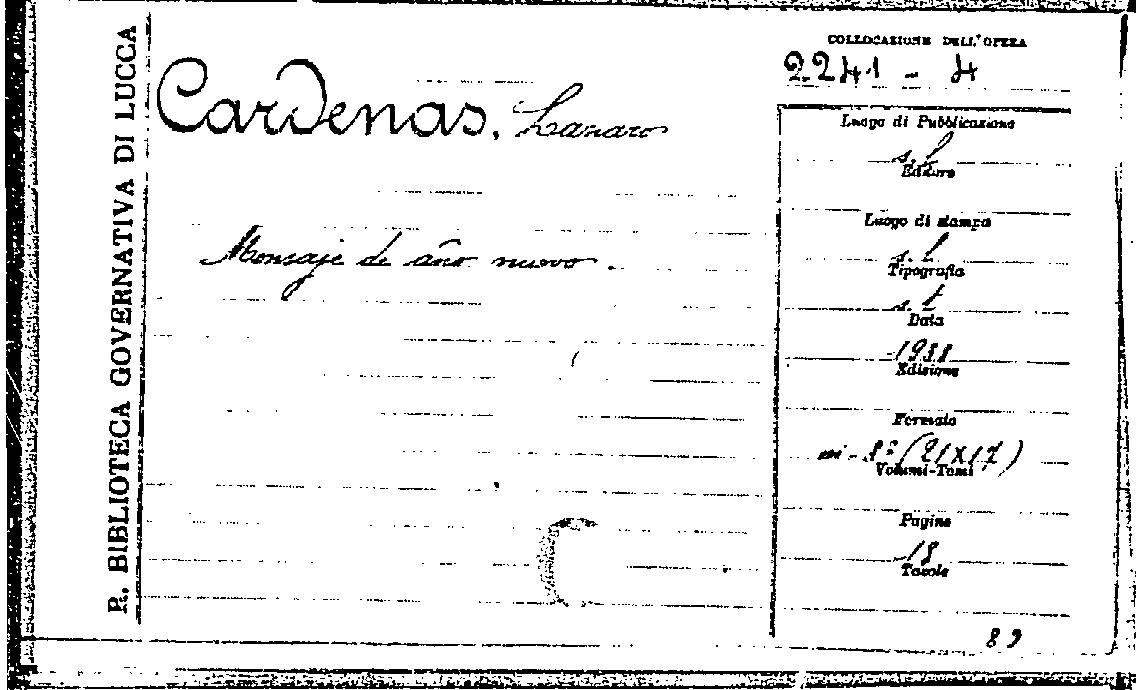 R. BIBLIOTECA GOVERNATIVA DI LUCCA
Cardenas, Lazaro
Mensaje de año nuevo.
COLLOCAZIONE DELL'OPERA
2241 - 4
Luogo di Pubblicazione
s. l
Editore
Luogo di stampa
s. l
Tipografia
s. t
Data
1938
Edizione
Formato
in - 8º (21X17)
Volumi-Tomi
Pagine
18
Tavole
89